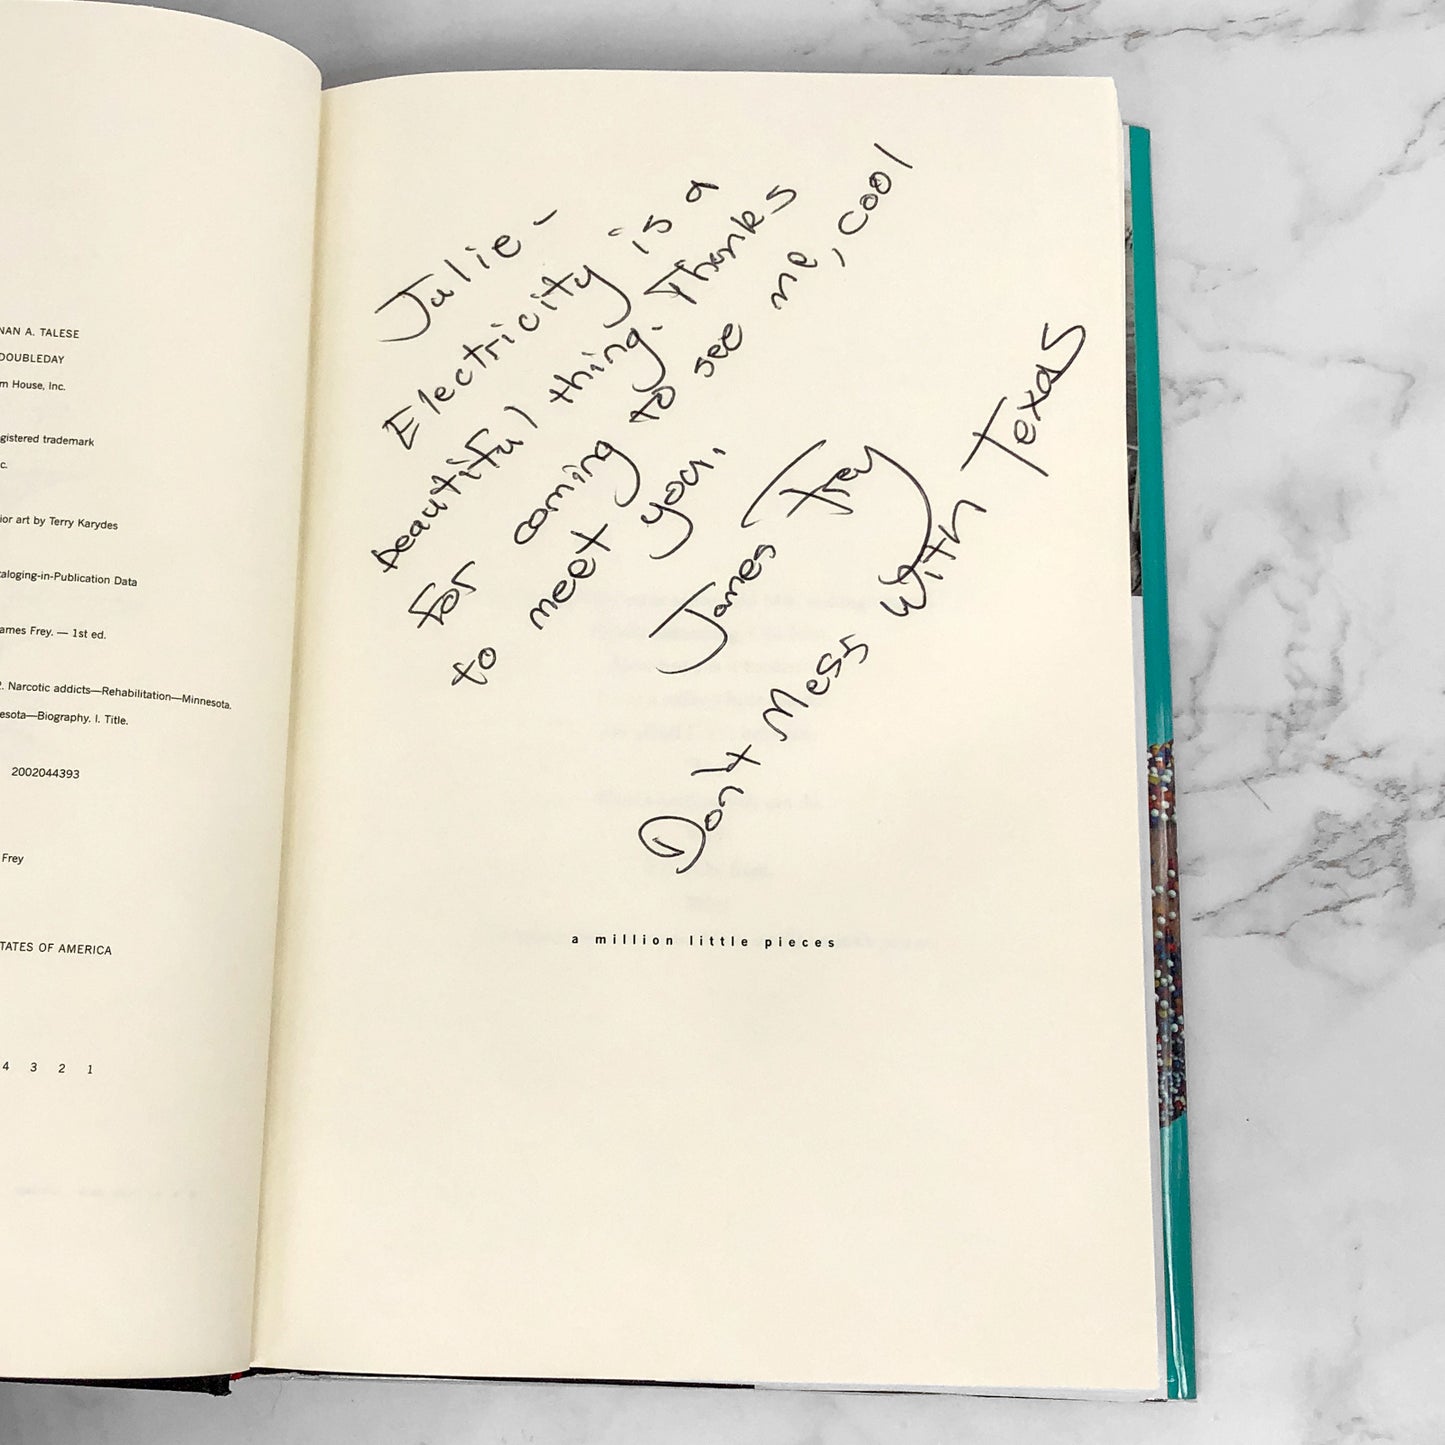 NAN A. TALESE
DOUBLEDAY
m House, Inc.
gistered trademark
c.
ior art by Terry Karydes
taloging-in-Publication Data
ames Frey. — 1st ed.
2. Narcotic addicts—Rehabilitation—Minnesota.
esota—Biography. I. Title.
2002044393
Frey
TATES OF AMERICA
4 3 2 1
Julie -
Electricity is a
beautiful thing. Thanks
for coming to see me, cool
to meet you.
James Frey
Dont Mess With Texas
a million little pieces